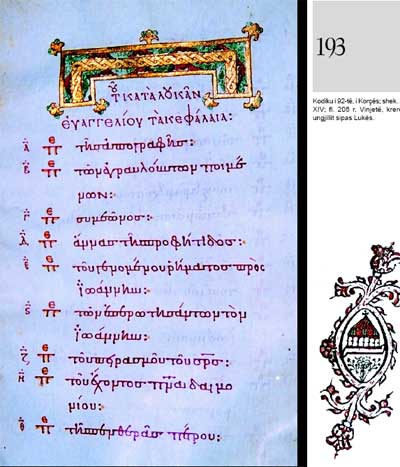 τοῦ κατα λουκᾶν
ευαγγελίου τὰ κεφάλαια:
Α πε τῆς ἀπογραφῆς:
Β πε τῶν ἀγραυλούντων ποιμέ
νων:
Γ πε συμεῶνος:
Δ πε ἄννας τῆς προφήτιδος:
Ε πε τοῦ γενομένου ῥήματος πρὸς
ἰωάννην:
ς πε τῶν ἐπερωτησάντων τὸν
ἰωάννην:
Ζ πε τοῦ πειρασμοῦ τοῦ σρς:
Η πε τοῦ ἔχοντος πνα δαιμο
νίου:
Θ πε τῆς πενθερᾶς πέτρου:
193
Kodiku i 92-të, i Korçës; shek.
XIV; fl. 206 r. Vinjetë,
ungjillit sipas Lukës.